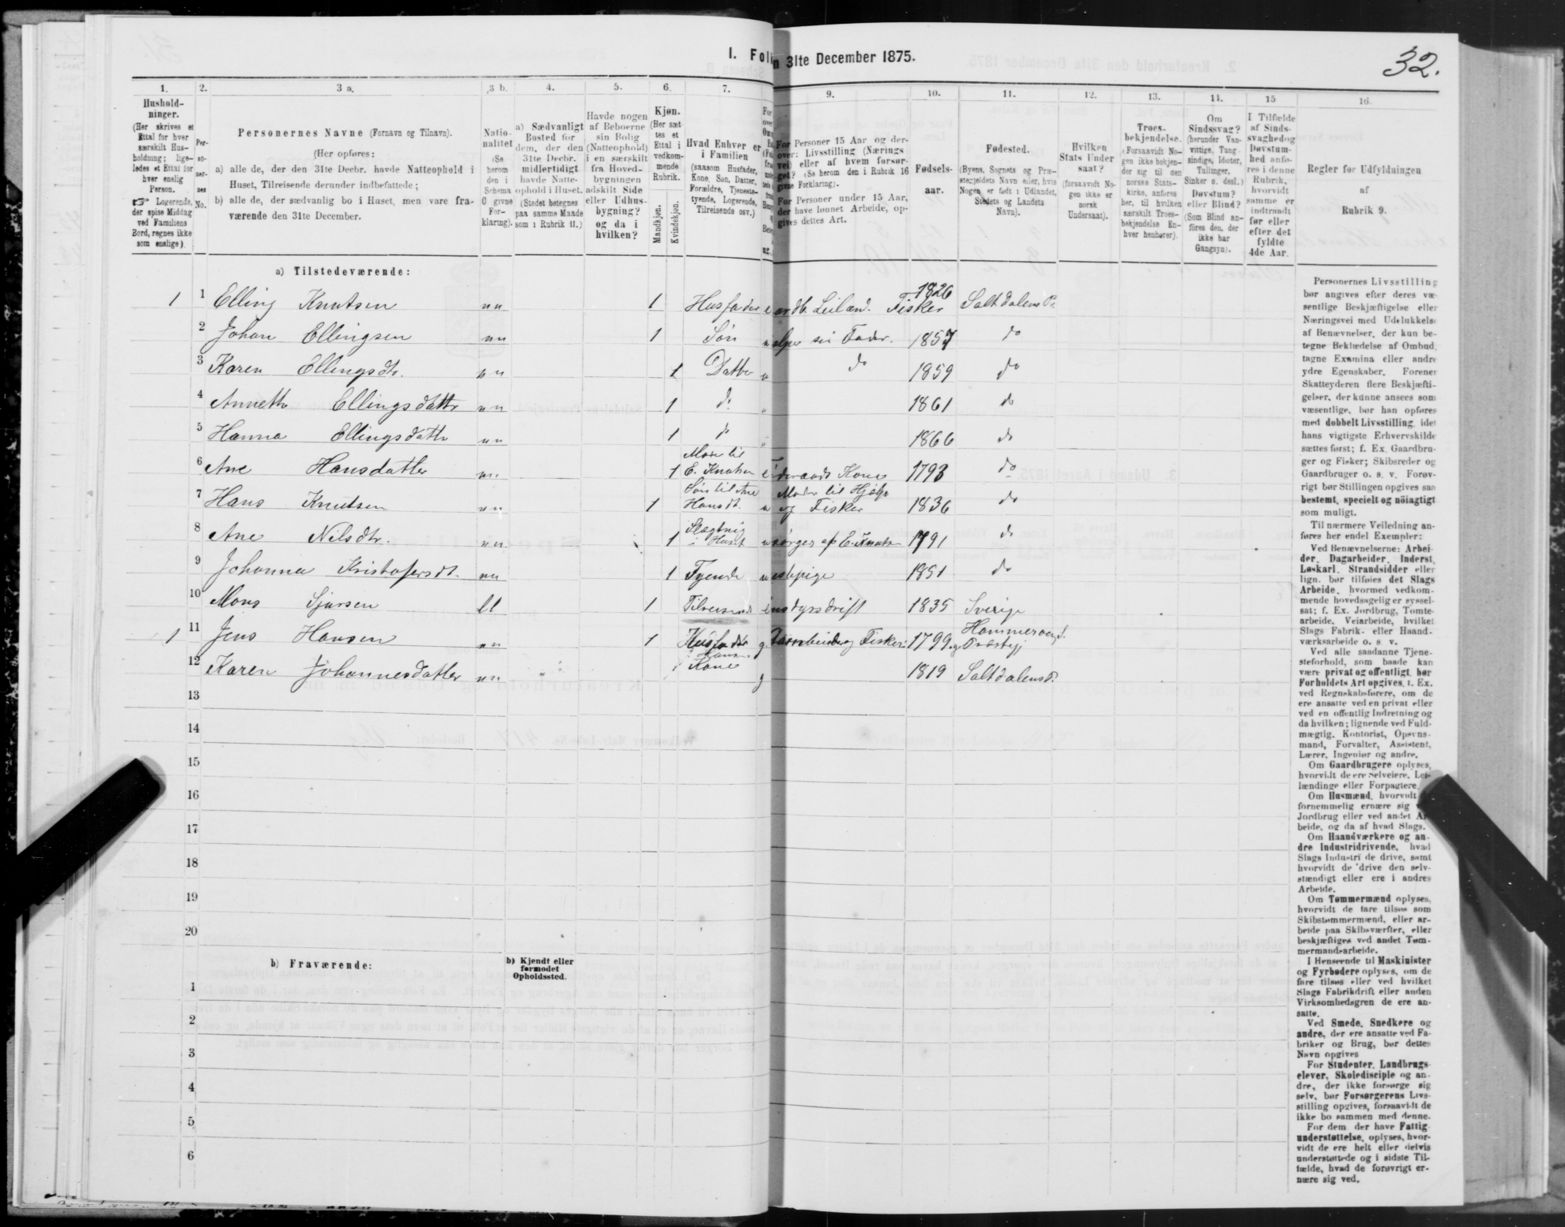 32.
I. Fol n 31te December 1875.
1. 2. 3 a. 3 b. 4. 5. 6. 7. 9. 10. 11. 12. 13. 14. 15 16.
Hushold-
ninger.
(Her skrives et
Ettal for hver
særskilt Hus-
holdning; lige-
ledes et Ettal for
hver enslig
Person.
☞ Logerende,
der spise Middag
ved Familiens
Bord, regnes ikke
som enslige).
Per-
so-
ner-
nes
No.
Personernes Navne (Fornavn og Tilnavn).
(Her opføres:
a) alle de, der den 31te Decbr. havde Natteophold i
Huset, Tilreisende derunder indbefattede;
b) alle de, der sædvanlig bo i Huset, men vare fra-
værende den 31te December.
Natio-
nalitet
(Se
herom
den i
Schema
O givne
For-
klaring).
a) Sædvanligt
Bosted for
dem, der den
31te Decbr.
midlertidigt
havde Natte-
ophold i Huset.
(Stedet betegnes
paa samme Maade
som i Rubrik 11.)
Havde nogen
af Beboerne
sin Bolig
(Natteophold)
i en særskilt
fra Hoved-
bygningen
adskilt Side
eller Udhus-
bygning?
og da i
hvilken?
Kjøn.
(Her sæt-
tes et
Ettal i
vedkom-
mende
Rubrik.
Mandkjøn.
Kvindekjøn.
Hvad Enhver er
i Familien
(saasom Husfader,
Kone, Søn, Datter,
Forældre, Tjeneste-
tyende, Logerende,
Tilreisende osv.)
For Personer 15 Aar og der-
over: Livsstilling (Nærings
vei) eller af hvem forsør-
get? (Se herom den i Rubrik 16
givne Forklaring).
For Personer under 15 Aar,
der have lønnet Arbeide, op-
gives dettes Art.
Fødsels-
aar.
Fødested.
(Byens, Sognets og Præ-
stegjeldets Navn eller, hvis
Nogen er født i Udlandet,
Stedets og Landets
Navn).
Hvilken
Stats Under
saat?
(forsaavidt No-
gen ikke er
norsk
Undersaat).
Troes-
bekjendelse.
(Forsaavidt No-
gen ikke bekjen-
der sig til den
norske Stats-
kirke, anføres
her, til hvilken
særskilt Troes-
bekjendelse En-
hver henhører).
Om
Sindssvag?
(herunder Van-
vittige, Tung-
sindige, Idioter,
Tullinger,
Sinker o. desl.)
Døvstum?
eller Blind?
(Som Blind an-
føres den, der
ikke har
Gangsyn).
I Tilfælde
af Sinds-
svaghed og
Døvstum-
hed anfø-
res i denne
Rubrik,
hvorvidt
samme er
indtraadt
før eller
efter det
fyldte
4de Aar.
Regler for Udfyldningen
af
Rubrik 9.
a) Tilstedeværende:
1 1 Elling Knutsen nn 1 Husfader Leilænd. Fisker 1826 Saltdalens P.
2 Johan Ellingsen nn 1 Søn sin Fader. 1857 do
3 Karen Ellingsdtr. nn 1 Datter do 1859 do
4 Anneth Ellingsdattr nn 1 do 1861 do
5 Hanna Ellingsdattr nn 1 do 1866 do
6 Ane Hansdatter nn 1 Moder til E. Knutsen Kone 1793 do
7 Hans Knutsen nn 1 Søn til Ane Hansdt. Moder til Hjælp og Fisker 1836 do
8 Ane Nilsdtr. nn 1 af E. Knutsen 1791 do
9 Johanna Kristofersdt. nn 1 Tyende 1851 do
10 Mons Sjursen 1 Tilreisende 1835 Sverige
1 11 Jens Hansen nn 1 Husfader g Fisker 1799 Hammerø
12 Karen Johannesdatter nn 1 Kone g 1819 Saltdalens P.
13
14
15
16
17
18
19
20
b) Fraværende:
b) Kjendt eller
formodet
Opholdssted.
1
2
3
4
5
6
Personernes Livsstilling
bør angives efter deres væ-
sentlige Beskjæftigelse eller
Næringsvei med Udelukkelse
af Benævnelser, der kun be-
tegne Beklædelse af Ombud,
tagne Examina eller andre
ydre Egenskaber. Forener
Skatteyderen flere Beskjæfti-
gelser, der kunne ansees som
væsentlige, bør han opføres
med dobbelt Livsstilling, idet
hans vigtigste Erhvervskilde
sættes først; f. Ex. Gaardbru-
ger og Fisker; Skibsreder og
Gaardbruger o. s. v. Forøv-
rigt bør Stillingen opgives saa
bestemt, specielt og nøiagtigt
som muligt.
Til nærmere Veiledning an-
føres her endel Exempler:
Ved Benævnelserne: Arbei-
der, Dagarbeider, Inderst,
Løskarl, Strandsidder eller
lign. bør tilføies det Slags
Arbeide, hvormed vedkom-
mende hovedsagelig er syssel-
sat; f. Ex. Jordbrug, Tomte-
arbeide, Veiarbeide, hvilket
Slags Fabrik- eller Haand-
værksarbeide o. s. v.
Ved alle saadanne Tjene-
steforhold, som baade kan
være privat og offentligt, bør
Forholdets Art opgives, f. Ex.
ved Regnskabsførere, om de
ere ansatte ved en privat eller
ved en offentlig Indretning og
da hvilken; lignende ved Fuld-
mægtig, Kontorist, Opsyns-
mand, Forvalter, Assistent,
Lærer, Ingeniør og andre.
Om Gaardbrugere oplyses,
hvorvidt de ere Selveiere, Lei-
lændinge eller Forpagtere.
Om Husmænd, hvorvidt
fornemmelig ernære sig
Jordbrug eller ved andet Ar-
beide, og da af hvad Slags.
Om Haandværkere og an-
dre Industridrivende, hvad
Slags Industri de drive, samt
hvorvidt de drive den selv-
stændigt eller ere i andres
Arbeide.
Om Tømmermænd oplyses,
hvorvidt de fare tilsøs som
Skibstømmermænd, eller ar-
beide paa Skibsværfter, eller
beskjæftiges ved andet Tøm-
mermandsarbeide.
I Henseende til Maskinister
og Fyrbødere oplyses, om de
fare tilsøs eller ved hvilket
Slags Fabrikdrift eller anden
Virksomhedsgren de ere an-
satte.
Ved Smede, Snedkere og
andre, der ere ansatte ved Fa-
briker og Brug, bør dettes
Navn opgives
For Studenter, Landbrugs-
elever, Skoledisciple og an-
dre, der ikke forsørge sig
selv, bør Forsørgerens Livs-
stilling opgives, forsaavidt de
ikke bo sammen med denne.
For dem der have Fattig-
understøttelse, oplyses, hvor-
vidt de ere helt eller delvis
understøttede og i sidste Til-
fælde, hvad de forøvrigt er-
nære sig ved.